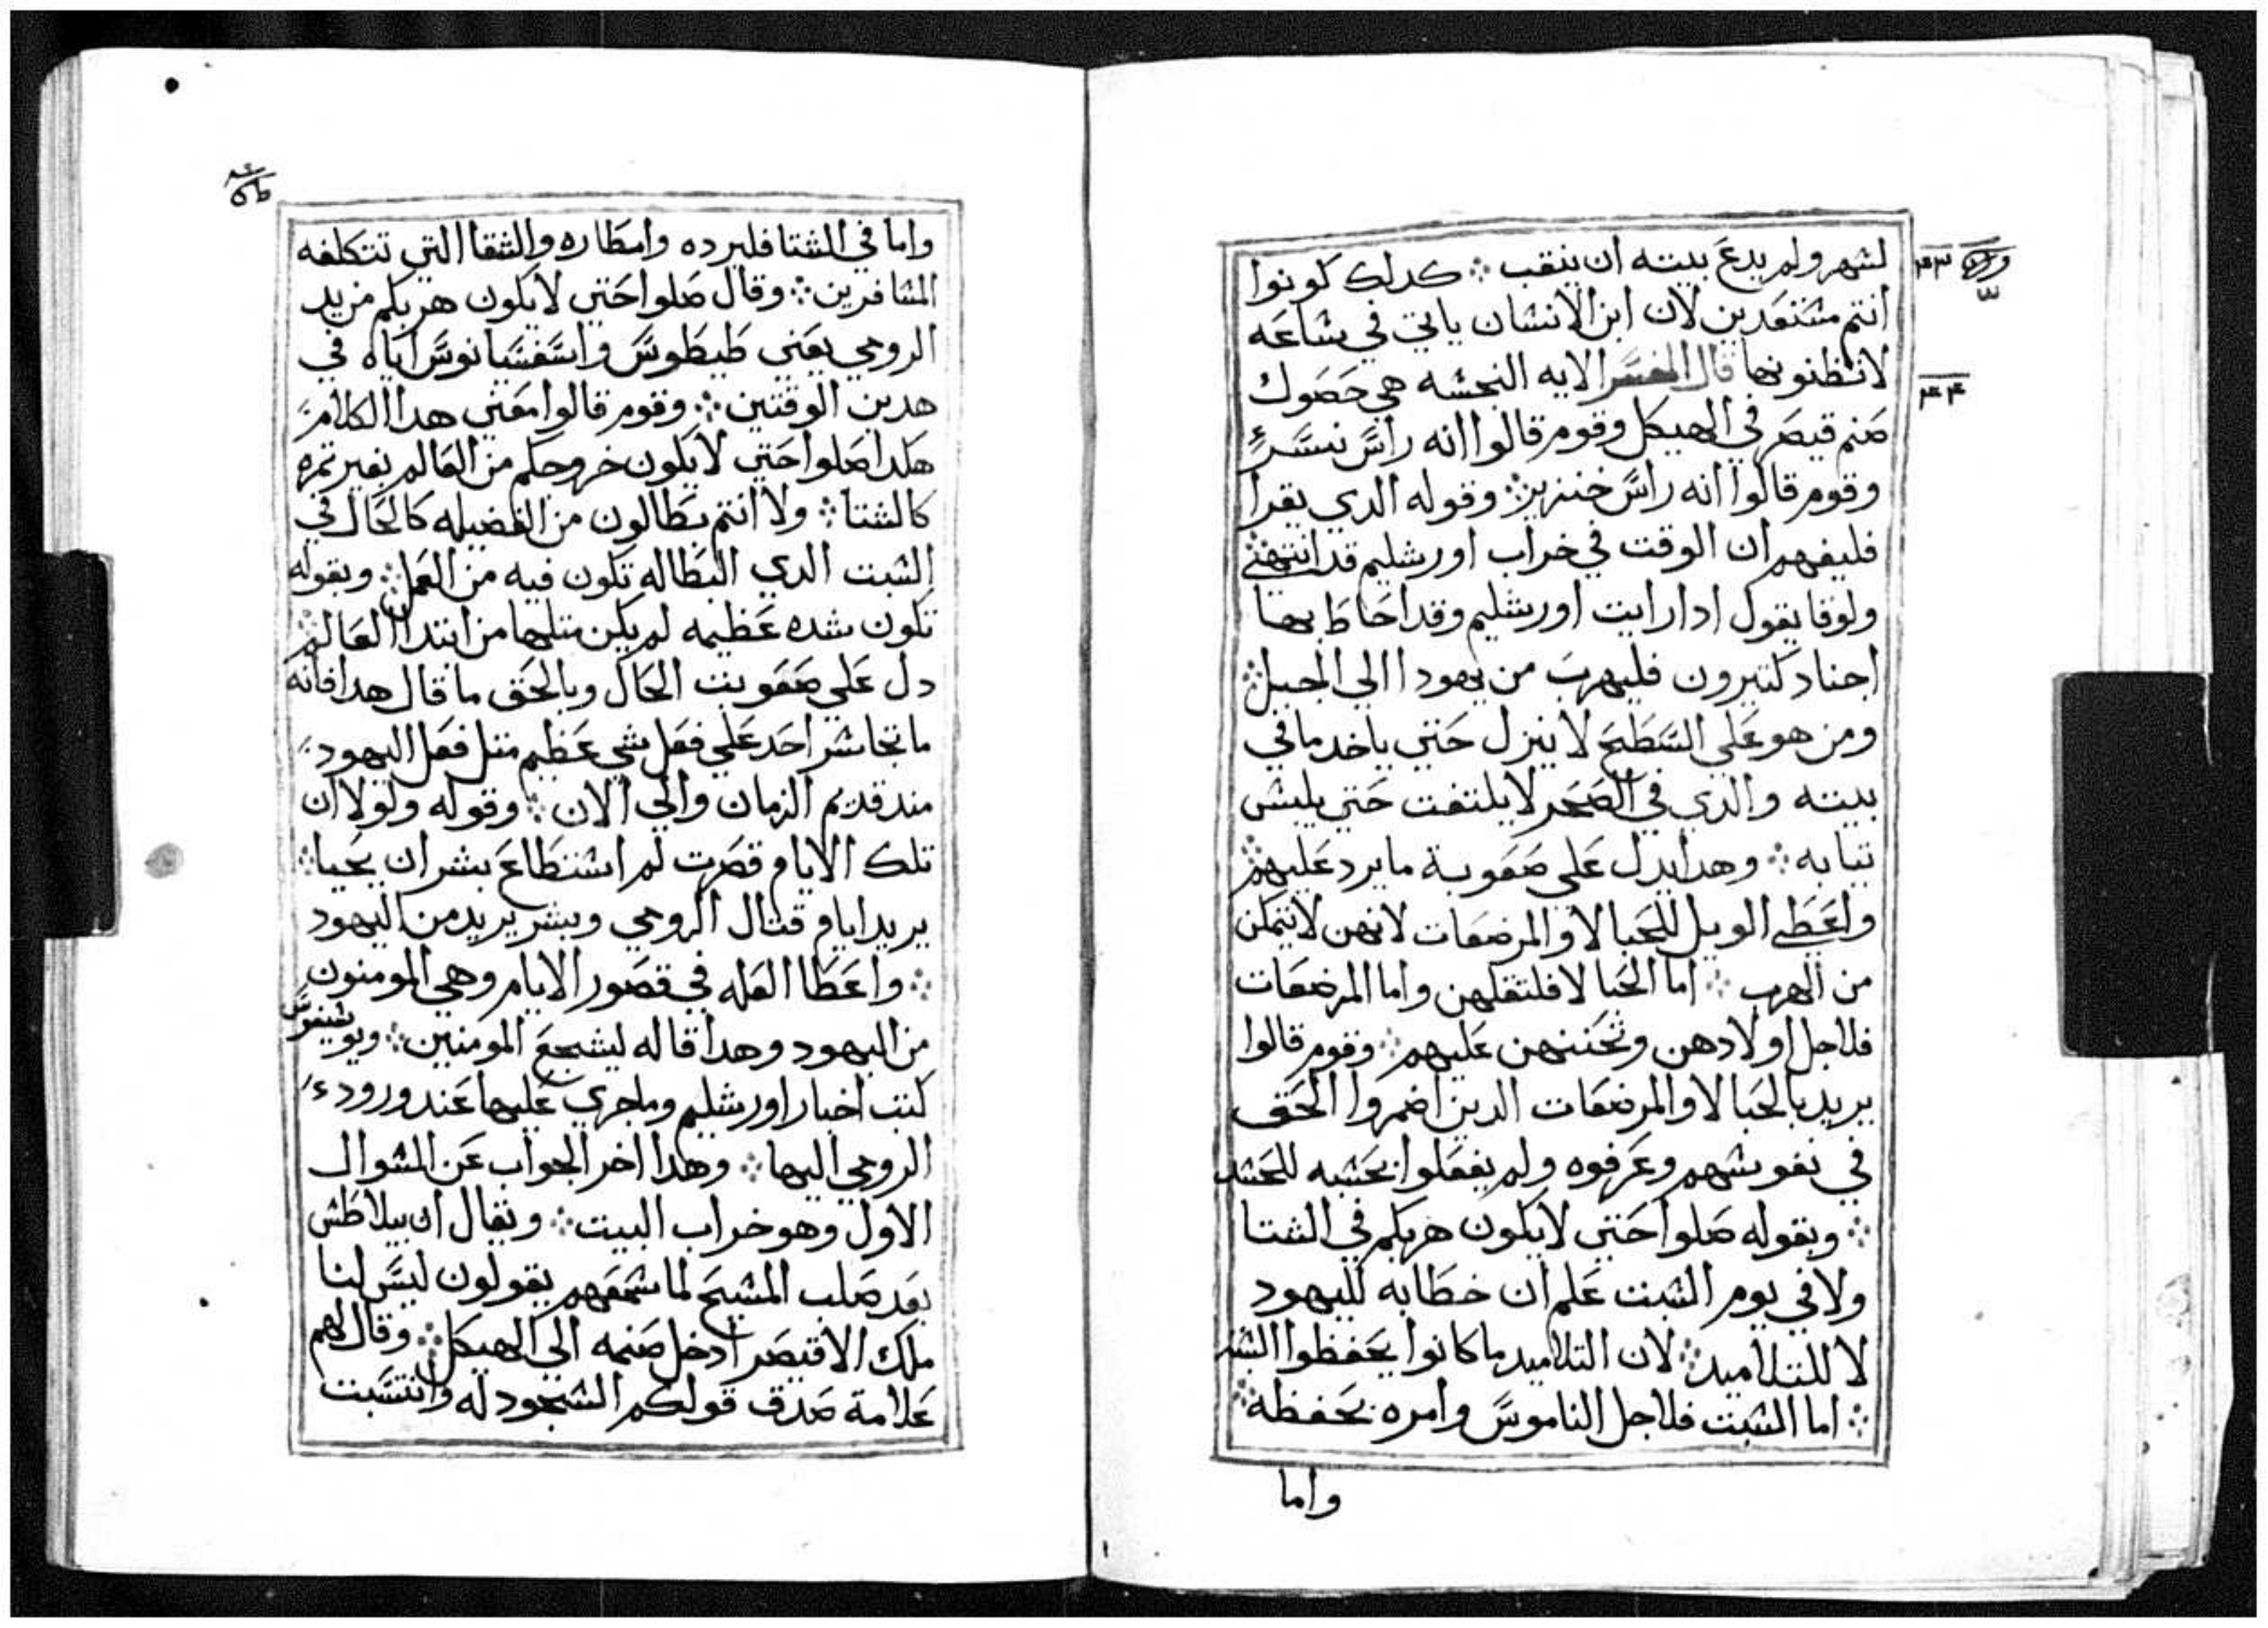 لشهر ولم يدع بيته ان ينقب ܀ كدلك كونوا
انتم مشتعدين لان ابن الانشان ياتي في شاعه
لاتظنونها قال المفسر الايه النجشه هي حصول
صنم قيصر في الهيكل وقوم قالوا انه راس نسر
وقوم قالوا انه راس خنزير ܀ وقوله الدي يقرا
فليفهم ان الوقت في خراب اورشليم قد انتهى
ولوقا يقول ادا رايت اورشليم وقد احاط بها
اجناد كتيرون فليهرب من يهودا الي الجبل ܀
ومن هو علي السطح لا ينزل حتي ياخد ما في
بيته والدي في الصحر لا يلتفت حتي يلبش
تيابه ܀ وهدا يدل علي صعوبة ما يرد عليهم ܀
واعطي الويل للحبالا والمرضعات لانهن لا يتمكن
من الهرب ܀ اما الحبالا فلتقلهن واما المرضعات
فلاجل اولادهن وتحننهن عليهم ܀ وقوم قالوا
يريد بالحبالا والمرضعات الدين اضمروا الحق
في نفوشهم وعرفوه ولم يفعلوا بحشبه للحشد
܀ وبقوله صلوا حتي لا يكون هربكم في الشتا
ولا في يوم الشبت علم ان خطابه لليهود
لا للتلاميد ܀ لان التلاميد ما كانوا يحفظوا الشبت
܀ اما الشبت فلاجل الناموس وامره بحفظه ܀
واما
واما في الشتا فلبرده وامطاره والشقا التي تتكلفه
المشافرين ܀ وقال صلوا حتي لا يكون هربكم من يد
الرومي يعني طيطوس واسفسيانوس اياه في
هدين الوقتين ܀ وقوم قالوا معني هدا الكلام
هكدا صلوا حتي لا يكون خروجكم من العالم بغير تمره
كالشتا ܀ ولا انتم بطالون من الفضيله كالحال في
الشبت الدي البطاله تكون فيه من العمل ܀ وبقوله
تكون شده عظيمه لم يكن متلها من ابتدا العالم ܀
دل علي صعوبت الحال وبالحق ما قال هدا فانه
ما تجاشر احد علي فعل شي عظيم متل فعل اليهود
مند قديم الزمان والي الان ܀ وقوله ولولا ان
تلك الايام قصرت لم اشتطاع بشر ان يحيا ܀
يريد ايام قتال الرومي وبشر يريد من اليهود
܀ واعطا العله في قصور الايام وهي المومنون
من اليهود وهدا قاله ليشجع المومنين ܀ ويوشيفوس
كتب اخبار اورشليم وما جري عليها عند ورود
الرومي اليها ܀ وهدا اخر الجواب عن الشوال
الاول وهو خراب البيت ܀ ويقال ان بيلاطش
بعد صلب المشيح لما شمعهم يقولون ليس لنا
ملك الا قيصر ادخل صنمه الي الهيكل ܀ وقال لهم
علامة صدق قولكم الشجود له وانتسبت